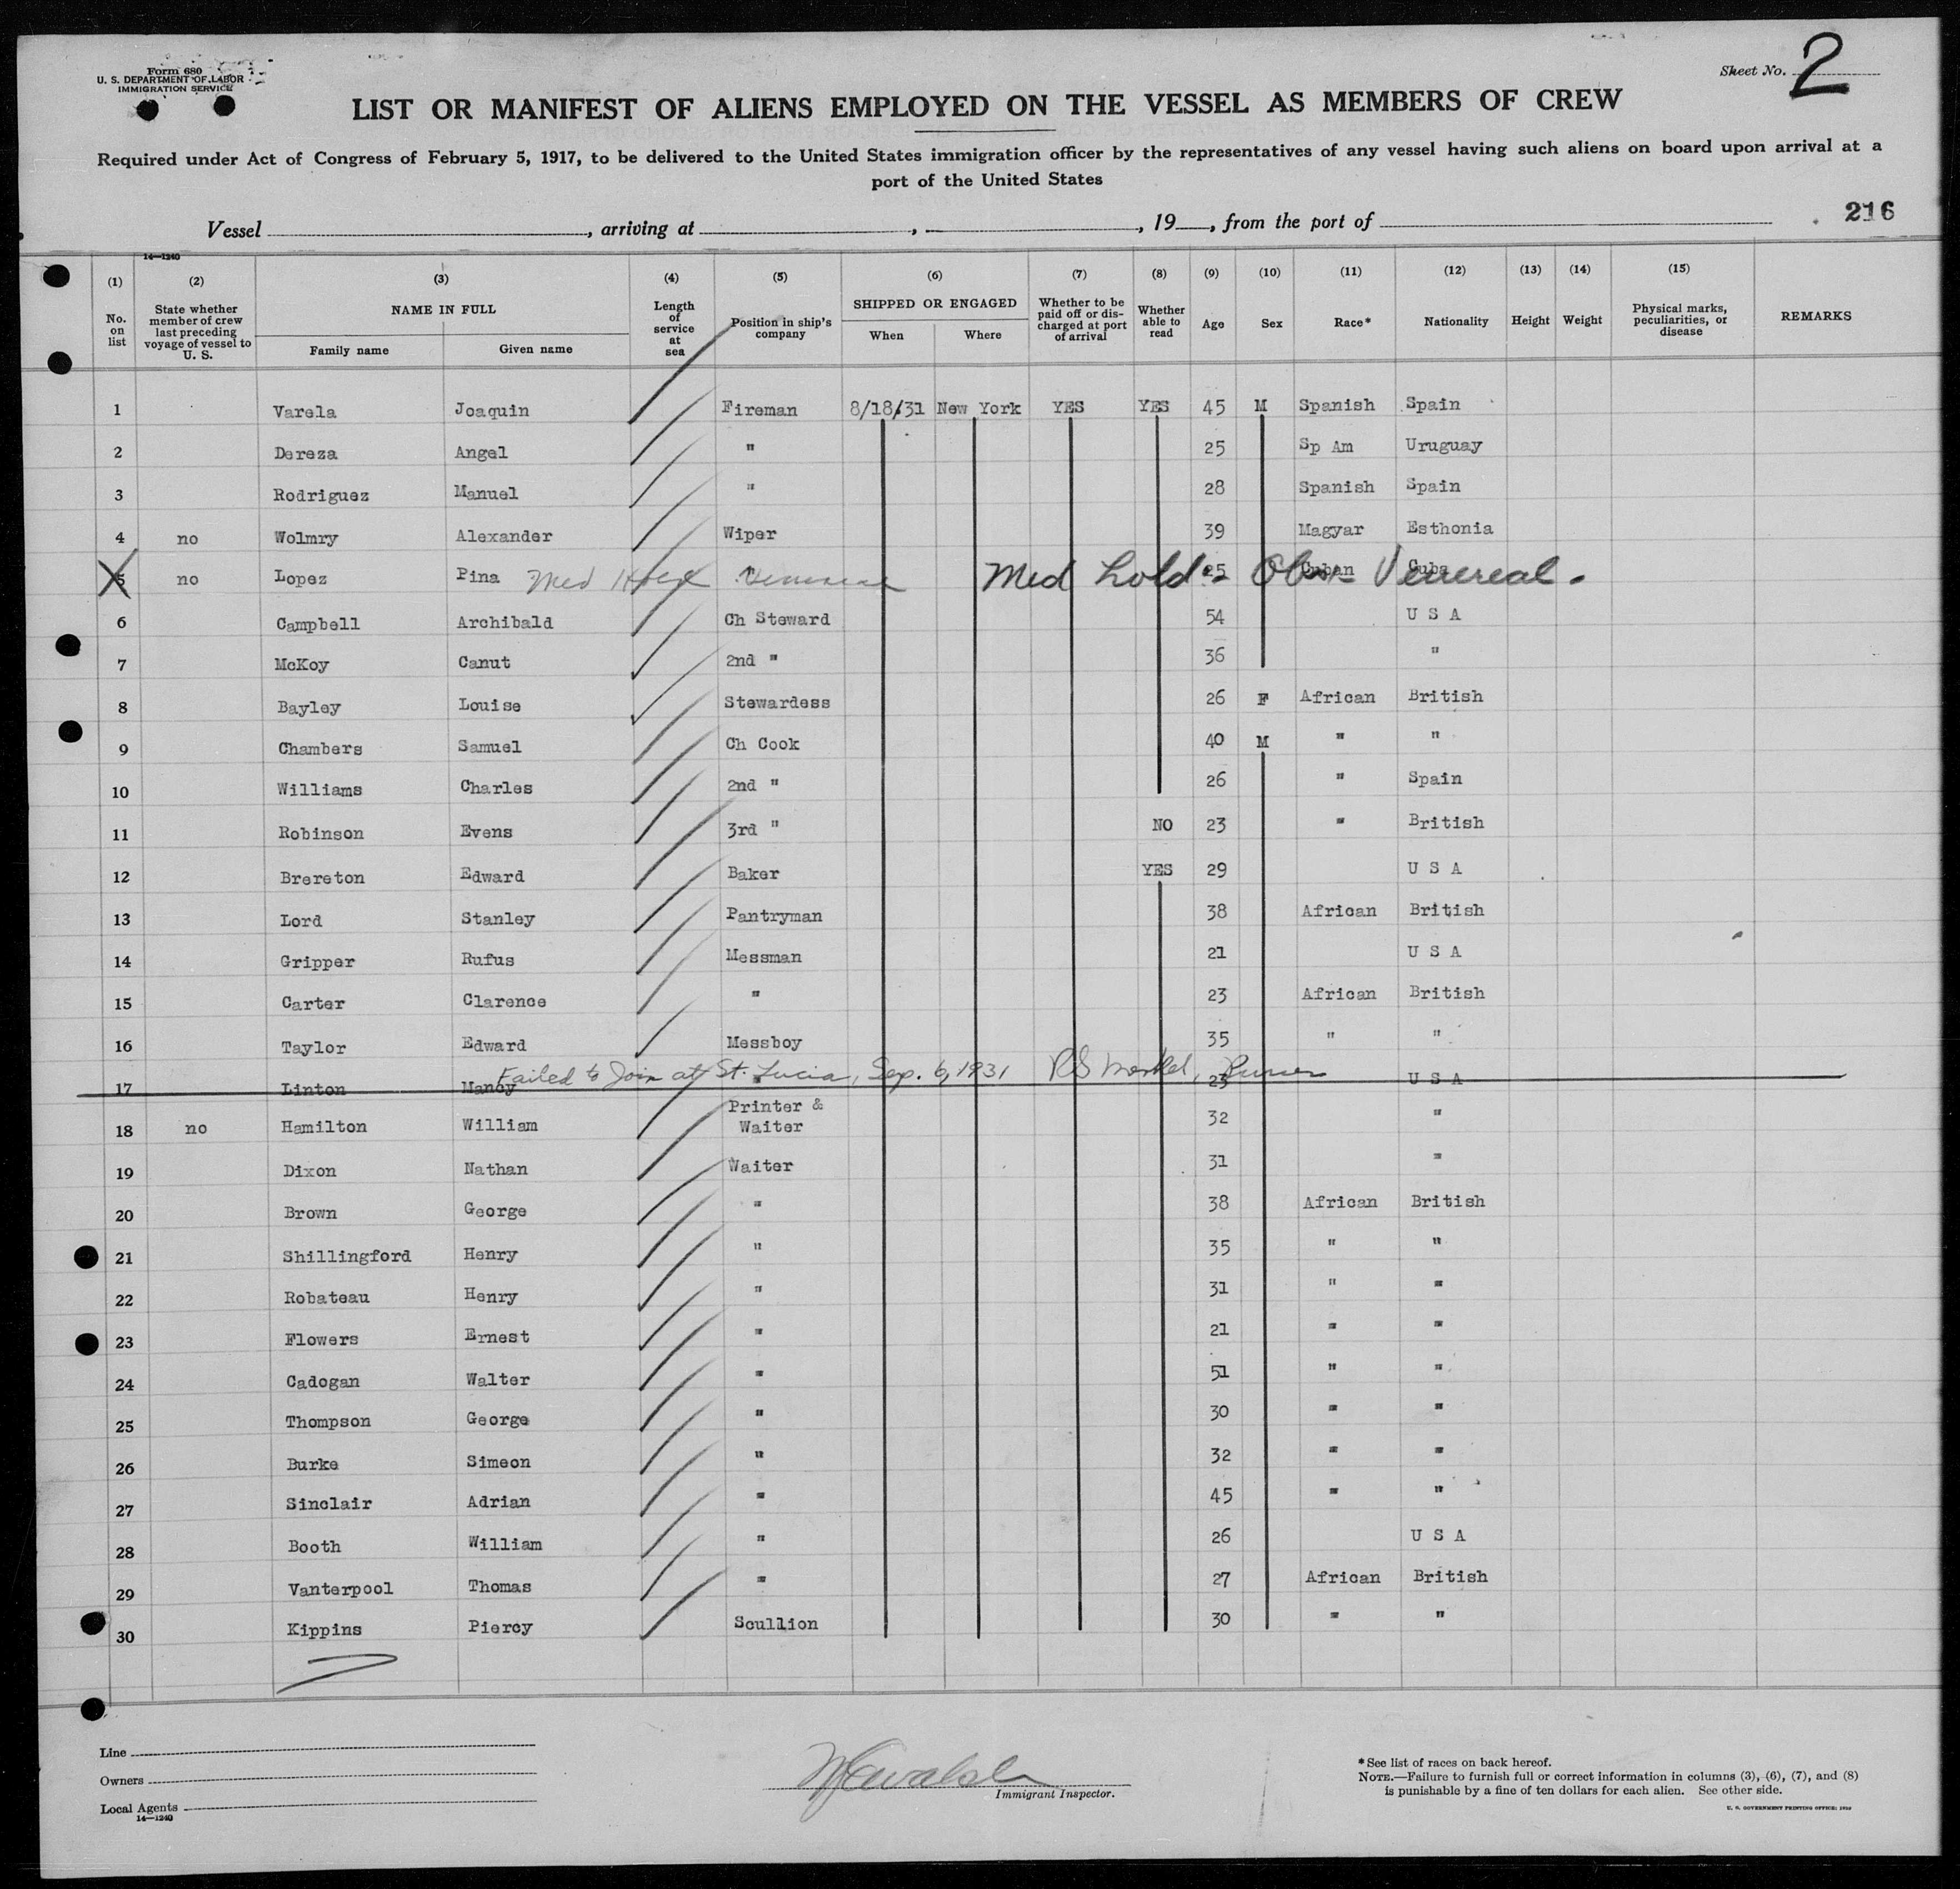 Form 680
U. S. DEPARTMENT OF LABOR
IMMIGRATION SERVICE
Sheet No. 2
LIST OR MANIFEST OF ALIENS EMPLOYED ON THE VESSEL AS MEMBERS OF CREW
Required under Act of Congress of February 5, 1917, to be delivered to the United States immigration officer by the representatives of any vessel having such aliens on board upon arrival at a
port of the United States
216
Vessel , arriving at , , 19 , from the port of
14—1240
(1) (2) (3) (4) (5) (6) (7) (8) (9) (10) (11) (12) (13) (14) (15)
No. on list State whether member of crew last preceding voyage of vessel to U. S. NAME IN FULL Family name Given name Length of service at sea Position in ship's company SHIPPED OR ENGAGED When Where Whether to be paid off or discharged at port of arrival Whether able to read Age Sex Race* Nationality Height Weight Physical marks, peculiarities, or disease REMARKS
1 Varela Joaquin Fireman 8/18/31 New York YES YES 45 M Spanish Spain
2 Dereza Angel " 25 Sp Am Uruguay
3 Rodriguez Manuel " 28 Spanish Spain
4 no Wolmry Alexander Wiper 39 Magyar Esthonia
5 no Lopez Pina Med Hold " Venereal Med hold - 25 Cuban Cuba Venereal.
6 Campbell Archibald Ch Steward 54 U S A
7 McKoy Canut 2nd " 36 "
8 Bayley Louise Stewardess 26 F African British
9 Chambers Samuel Ch Cook 40 M " "
10 Williams Charles 2nd " 26 " Spain
11 Robinson Evens 3rd " NO 23 " British
12 Brereton Edward Baker YES 29 U S A
13 Lord Stanley Pantryman 38 African British
14 Gripper Rufus Messman 21 U S A
15 Carter Clarence " 23 African British
16 Taylor Edward Messboy 35 " "
Failed to Join at St. Lucia, Sep. 6, 1931 Purser
17 Linton Mandy 23 U S A
18 no Hamilton William Printer & Waiter 32 "
19 Dixon Nathan Waiter 31 "
20 Brown George " 38 African British
21 Shillingford Henry " 35 " "
22 Robateau Henry " 31 " "
23 Flowers Ernest " 21 " "
24 Cadogan Walter " 51 " "
25 Thompson George " 30 " "
26 Burke Simeon " 32 " "
27 Sinclair Adrian " 45 " "
28 Booth William " 26 U S A
29 Vanterpool Thomas " 27 African British
30 Kippins Piercy Scullion 30 " "
Line
Owners
Local Agents
14—1240
Immigrant Inspector.
*See list of races on back hereof.
NOTE.—Failure to furnish full or correct information in columns (3), (6), (7), and (8)
is punishable by a fine of ten dollars for each alien. See other side.
U. S. GOVERNMENT PRINTING OFFICE: 1929